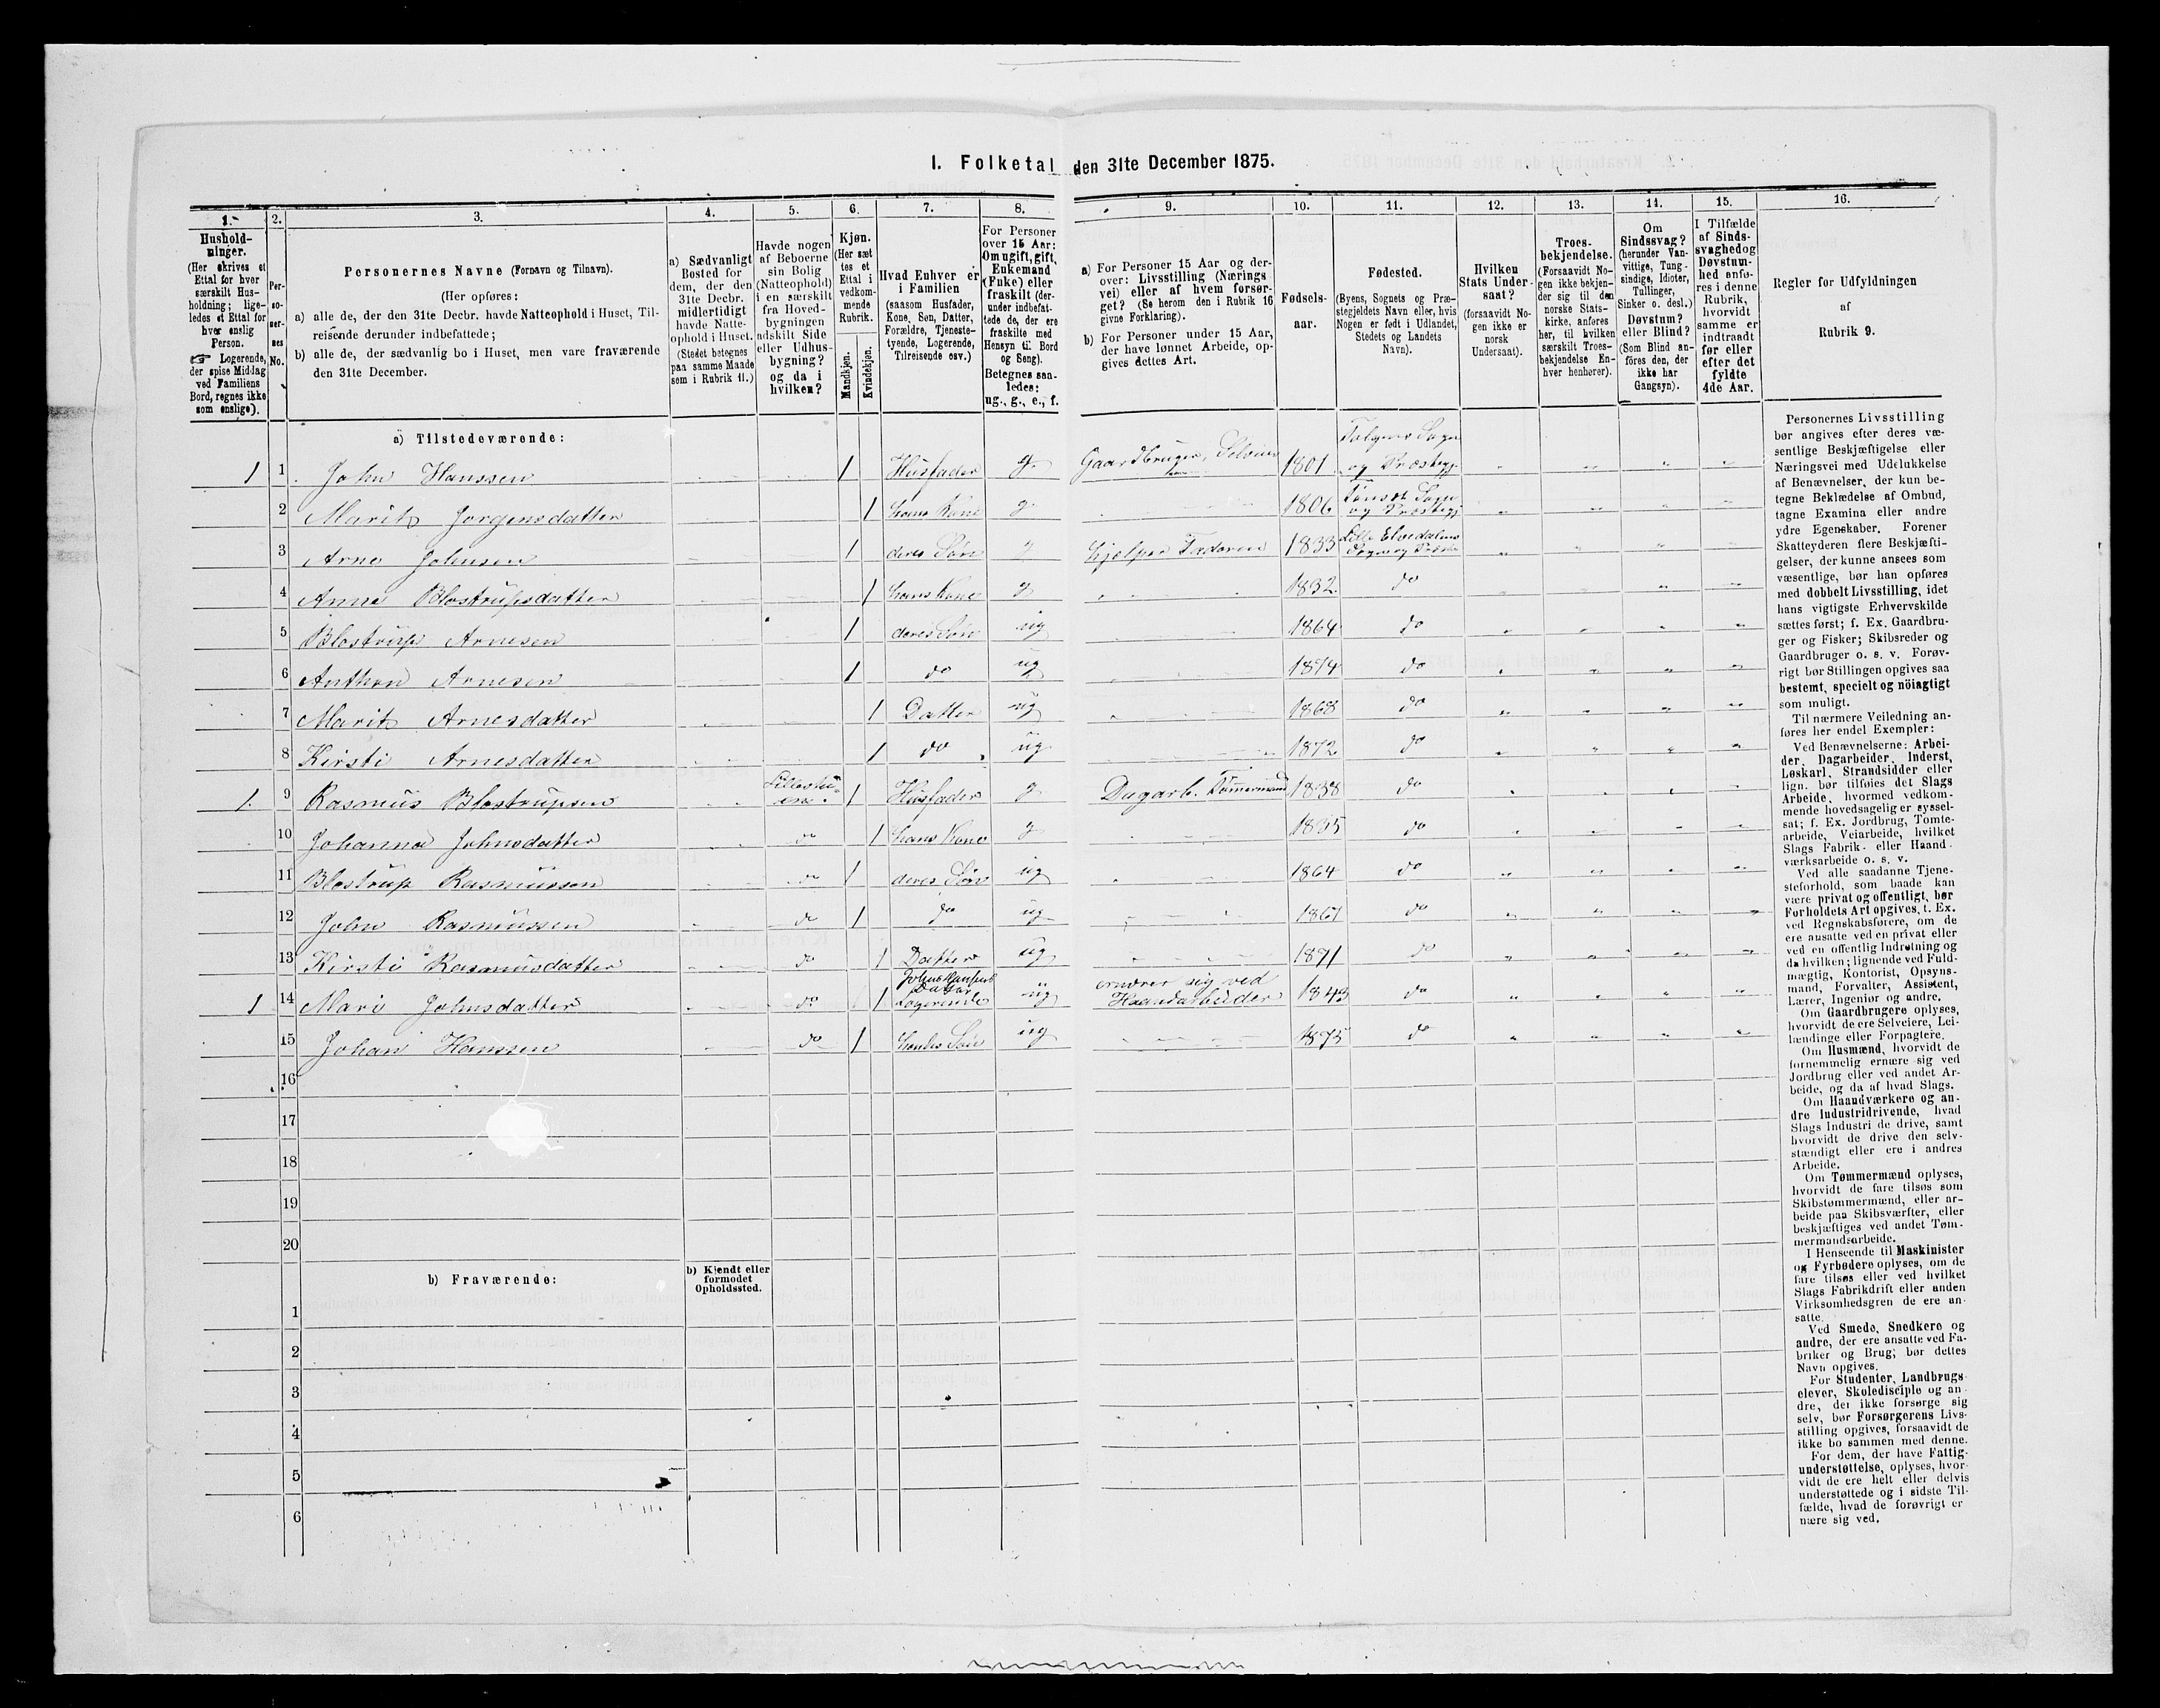 I. Folketal den 31te December 1875.
1. 2. 3. 4. 5. 6. 7. 8. 9. 10. 11. 12. 13. 14. 15. 16.
Hushold-
ninger.
(Her skrives et
Ettal for hver
særskilt Hus-
holdning; lige-
ledes et Ettal for
hver enslig
Person.
☞ Logerende,
der spise Middag
ved Familiens
Bord, regnes ikke
som enslige).
Per-
so-
ner-
nes
No.
Personernes Navne (Fornavn og Tilnavn).
(Her opføres:
a) alle de, der den 31te Decbr. havde Natteophold i Huset, Til-
reisende derunder indbefattede;
b) alle de, der sædvanlig bo i Huset, men vare fraværende
den 31te December.
a) Sædvanligt
Bosted for
dem, der den
31te Decbr.
midlertidigt
havde Natte-
ophold i Huset.
(Stedet betegnes
paa samme Maade
som i Rubrik 11.)
Havde nogen
af Beboerne
sin Bolig
(Natteophold)
i en særskilt
fra Hoved-
bygningen
adskilt Side
eller Udhus-
bygning?
og da i
hvilken?
Kjøn.
(Her sæt
tes et
Ettal i
vedkom-
mende
Rubrik.
Mandkjøn.
Kvindekjøn.
Hvad Enhver er
i Familien
(saasom Husfader,
Kone, Søn, Datter,
Forældre, Tjeneste-
tyende, Logerende,
Tilreisende osv.)
For Personer
over 15 Aar:
Om ugift, gift,
Enkemand
(Enke) eller
fraskilt (der-
under indbefat-
tede de, der ere
fraskilte med
Hensyn til Bord
og Seng).
Betegnes saa-
ledes:
ug., g., e., f.
a) For Personer 15 Aar og der-
over: Livsstilling (Nærings
vei) eller af hvem forsør-
get? (Se herom den i Rubrik 16
givne Forklaring).
b) For Personer under 15 Aar,
der have lønnet Arbeide, op-
gives dettes Art.
Fødsels-
aar.
Fødested.
(Byens, Sognets og Præ-
stegjeldets Navn eller, hvis
Nogen er født i Udlandet,
Stedets og Landets
Navn).
Hvilken
Stats Under-
saat?
(forsaavidt No-
gen ikke er
norsk
Undersaat).
Troes-
bekjendelse.
(Forsaavidt No-
gen ikke bekjen-
der sig til den
norske Stats-
kirke, anføres
her, til hvilken
særskilt Troes-
bekjendelse En-
hver henhører).
Om
Sindssvag?
(herunder Van-
vittige, Tung-
sindige, Idioter,
Tullinger,
Sinker o. desl.)
Døvstum?
eller Blind?
(Som Blind an-
føres den, der
ikke har
Gangsyn).
I Tilfælde
af Sinds-
svaghed og
Døvstum-
hed anfø-
res i denne
Rubrik,
hvorvidt
samme er
indtraadt
før eller
efter det
fyldte
4de Aar.
Regler for Udfyldningen
af
Rubrik 9.
a) Tilstedeværende:
1 1 John Hanssen 1 Husfader g Gaardbruger, Selveier 1801 Tolgens Sogn og Præstegj.
2 Marit Jørgensdatter 1 hans Kone g 1806 Tønset Sogn og Præstegj
3 Arne Johnsen 1 deres Søn g hjelper Faderen 1833 Lille Elvedalens Sogn og Præste
4 Anne Blostrupsdatter 1 hans Kone g 1832 do
5 Blostrup Arnesen 1 deres Søn ug 1864 do
6 Anthon Arnesen 1 do ug 1874 do
7 Marit Arnesdatter 1 Datter ug 1868 do
8 Kirsti Arnesdatter 1 do ug 1872 do
1 9 Rasmus Blostrupsen 1 Husfader g Dagarb. Tømmermand 1838 do
10 Johanna Johnsdatter do 1 hans Kone g 1835 do
11 Blostrup Rasmussen do 1 deres Søn ug 1864 do
12 John Rasmussen do 1 do ug 1867 do
13 Kirsti Rasmusdatter do 1 Datter ug 1871 do
1 14 Mari Johnsdatter do 1 John Hansens Datter Logerende ug ernærer sig ved Haandarbeider 1843 do
15 Johan Hanssen do 1 hendes Søn ug 1875 do
16
17
18
19
20
b) Fraværende:
b) Kjendt eller
formodet
Opholdssted.
1
2
3
4
5
6
Personernes Livsstilling
bør angives efter deres væ-
sentlige Beskjæftigelse eller
Næringsvei med Udelukkelse
af Benævnelser, der kun be-
tegne Beklædelse af Ombud,
tagne Examina eller andre
ydre Egenskaber. Forener
Skatteyderen flere Beskjæfti-
gelser, der kunne ansees som
væsentlige, bør han opføres
med dobbelt Livsstilling, idet
hans vigtigste Erhvervskilde
sættes først; f. Ex. Gaardbru-
ger og Fisker; Skibsreder og
Gaardbruger o. s. v. Forøv-
rigt bør Stillingen opgives saa
bestemt, specielt og nöiagtigt
som muligt.
Til nærmere Veiledning an-
føres her endel Exempler:
Ved Benævnelserne: Arbei-
der, Dagarbeider, Inderst,
Løskarl, Strandsidder eller
lign. bør tilføies det Slags
Arbeide, hvormed vedkom-
mende hovedsagelig er syssel-
sat; f. Ex. Jordbrug, Tomte-
arbeide, Veiarbeide, hvilket
Slags Fabrik- eller Haand-
værksarbeide o. s. v.
Ved alle saadanne Tjene-
steforhold, som baade kan
være privat og offentligt, bør
Forholdets Art opgives, t. Ex.
ved Regnskabsførere, om de
ere ansatte ved en privat eller
ved en offentlig Indretning og
da hvilken; lignende ved Fuld-
mægtig, Kontorist, Opsyns-
mand, Forvalter, Assistent,
Lærer, Ingeniør og andre.
Om Gaardbrugere oplyses,
hvorvidt de ere Selveiere, Lei-
lændinge eller Forpagtere.
Om Husmænd, hvorvidt de
fornemmelig ernære sig ved
Jordbrug eller ved andet Ar-
beide, og da af hvad Slags.
Om Haandværkere og an-
dre Industridrivende, hvad
Slags Industri de drive, samt
hvorvidt de drive den selv-
stændigt eller ere i andres
Arbeide.
Om Tømmermænd oplyses,
hvorvidt de fare tilsøs som
Skibstømmermænd, eller ar-
beide paa Skibsværfter, eller
beskjæftiges ved andet Tøm-
mermandsarbeide.
I Henseende til Maskinister
og Fyrbødere oplyses, om de
fare tilsøs eller ved hvilket
Slags Fabrikdrift eller anden
Virksomhedsgren de ere an-
satte.
Ved Smede, Snedkere og
andre, der ere ansatte ved Fa-
briker og Brug; bør dettes
Navn opgives.
For Studenter, Landbrugs-
elever, Skoledisciple og an-
dre, der ikke forsørge sig
selv, bør Forsørgerens Livs-
stilling opgives, forsaavidt de
ikke bo sammen med denne.
For dem, der have Fattig-
understøttelse, oplyses, hvor-
vidt de ere helt eller delvis
understøttede og i sidste Til-
fælde, hvad de forøvrigt er
nære sig ved.